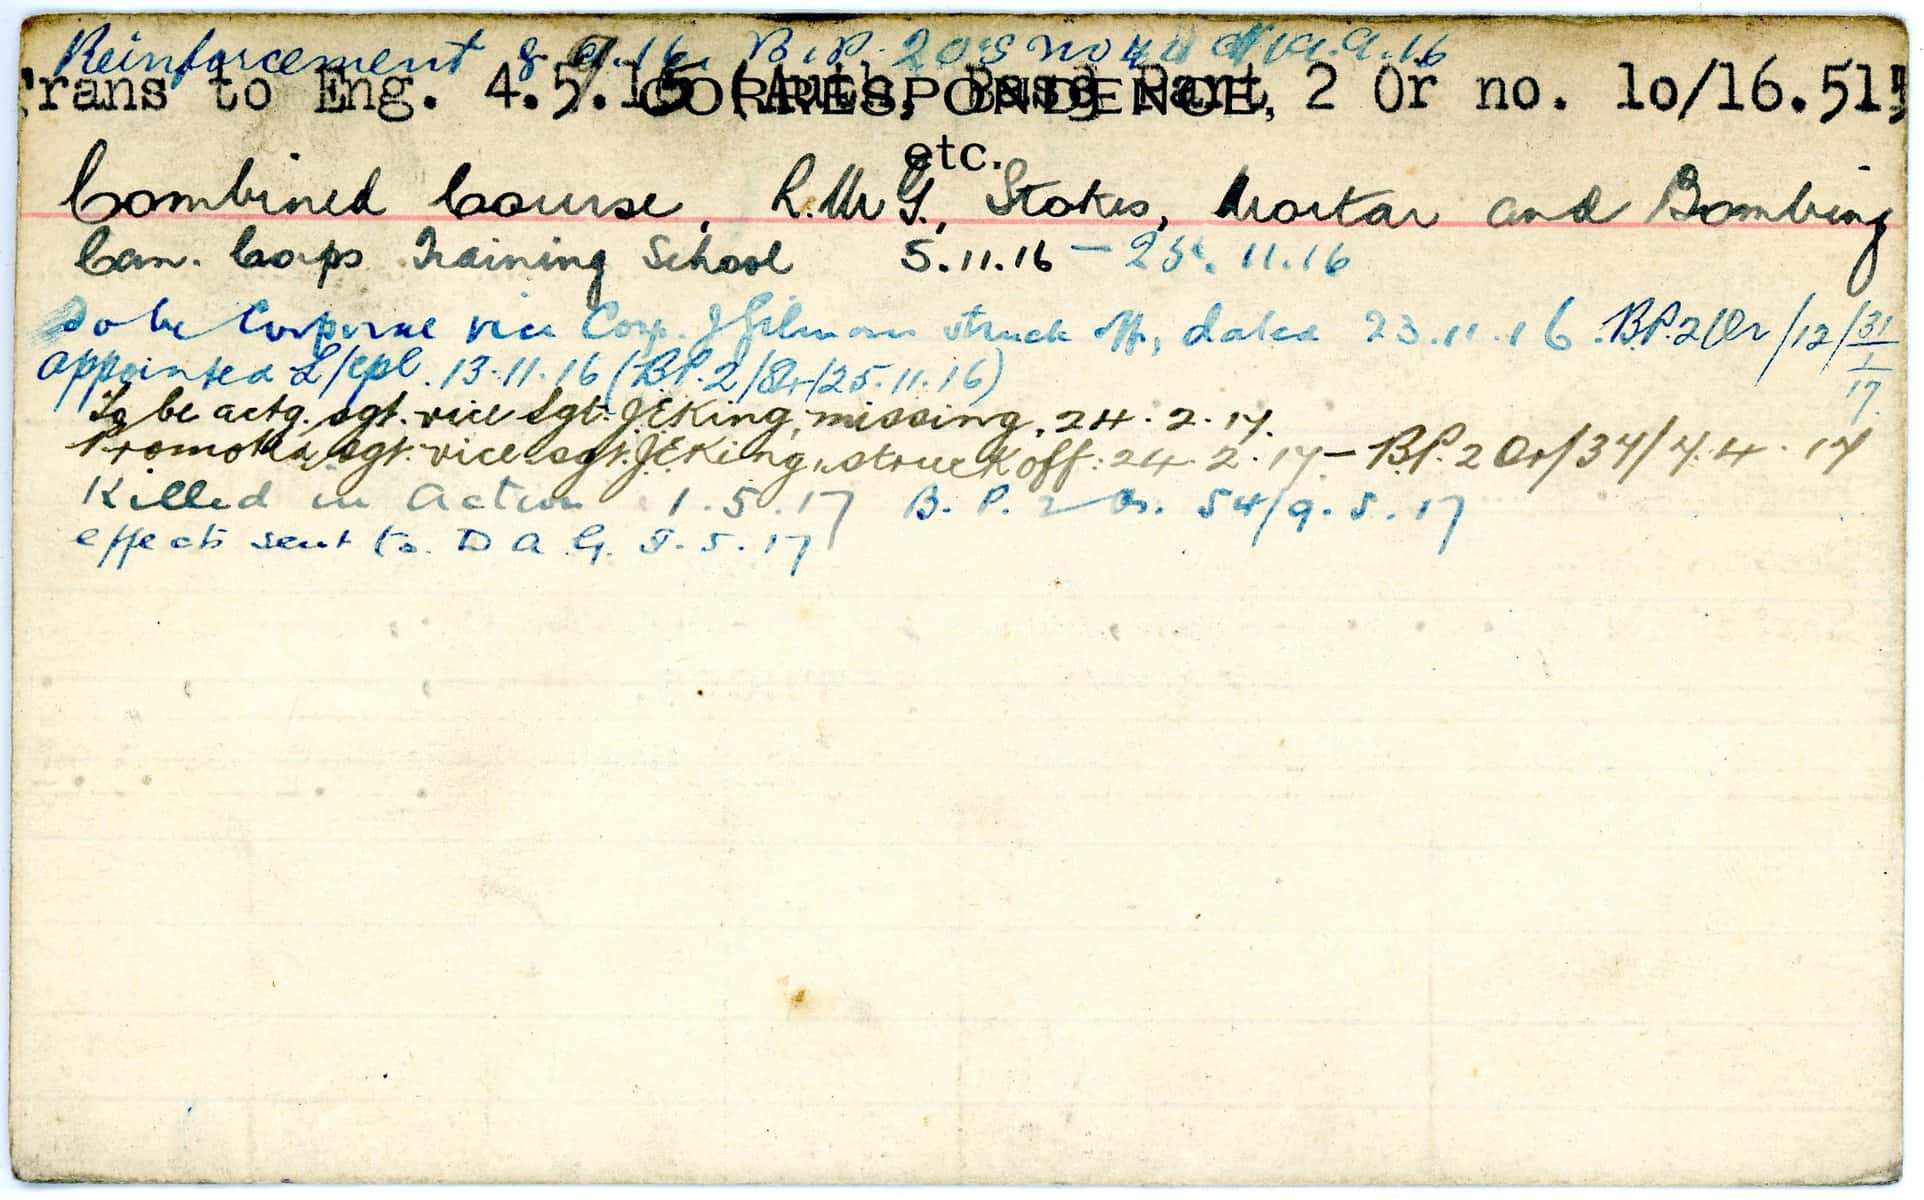 Reinforcement 8.9.16. B.P. 2 O's No 44 d/19.9.16
Trans to Eng. 4.5.15 (Auth. Base Part 2 Or no. 1o/16.515
CORRESPONDENCE,
etc.
Combined Course, L.M.G., Stokes, Mortar and Bombing
Can. Corps Training School 5.11.16 – 25. 11.16
To be Corporal vice Corp. J Gilmour struck off, dated 23.11.16. B.P.2/Or/12/31/1/17.
appointed L/cpl. 13.11.16 (B.P.2/Or/25.11.16)
To be actg. sgt. vice Sgt. J.E King, missing, 24.2.17.
Promoted sgt. vice sgt. J.E King, struck off: 24.2.17 – B.P. 2 Or/37/7.4.17
Killed in Action 1.5.17 B.P. 2 Or. 54/9.5.17
effects sent to D A G. 5.5.17